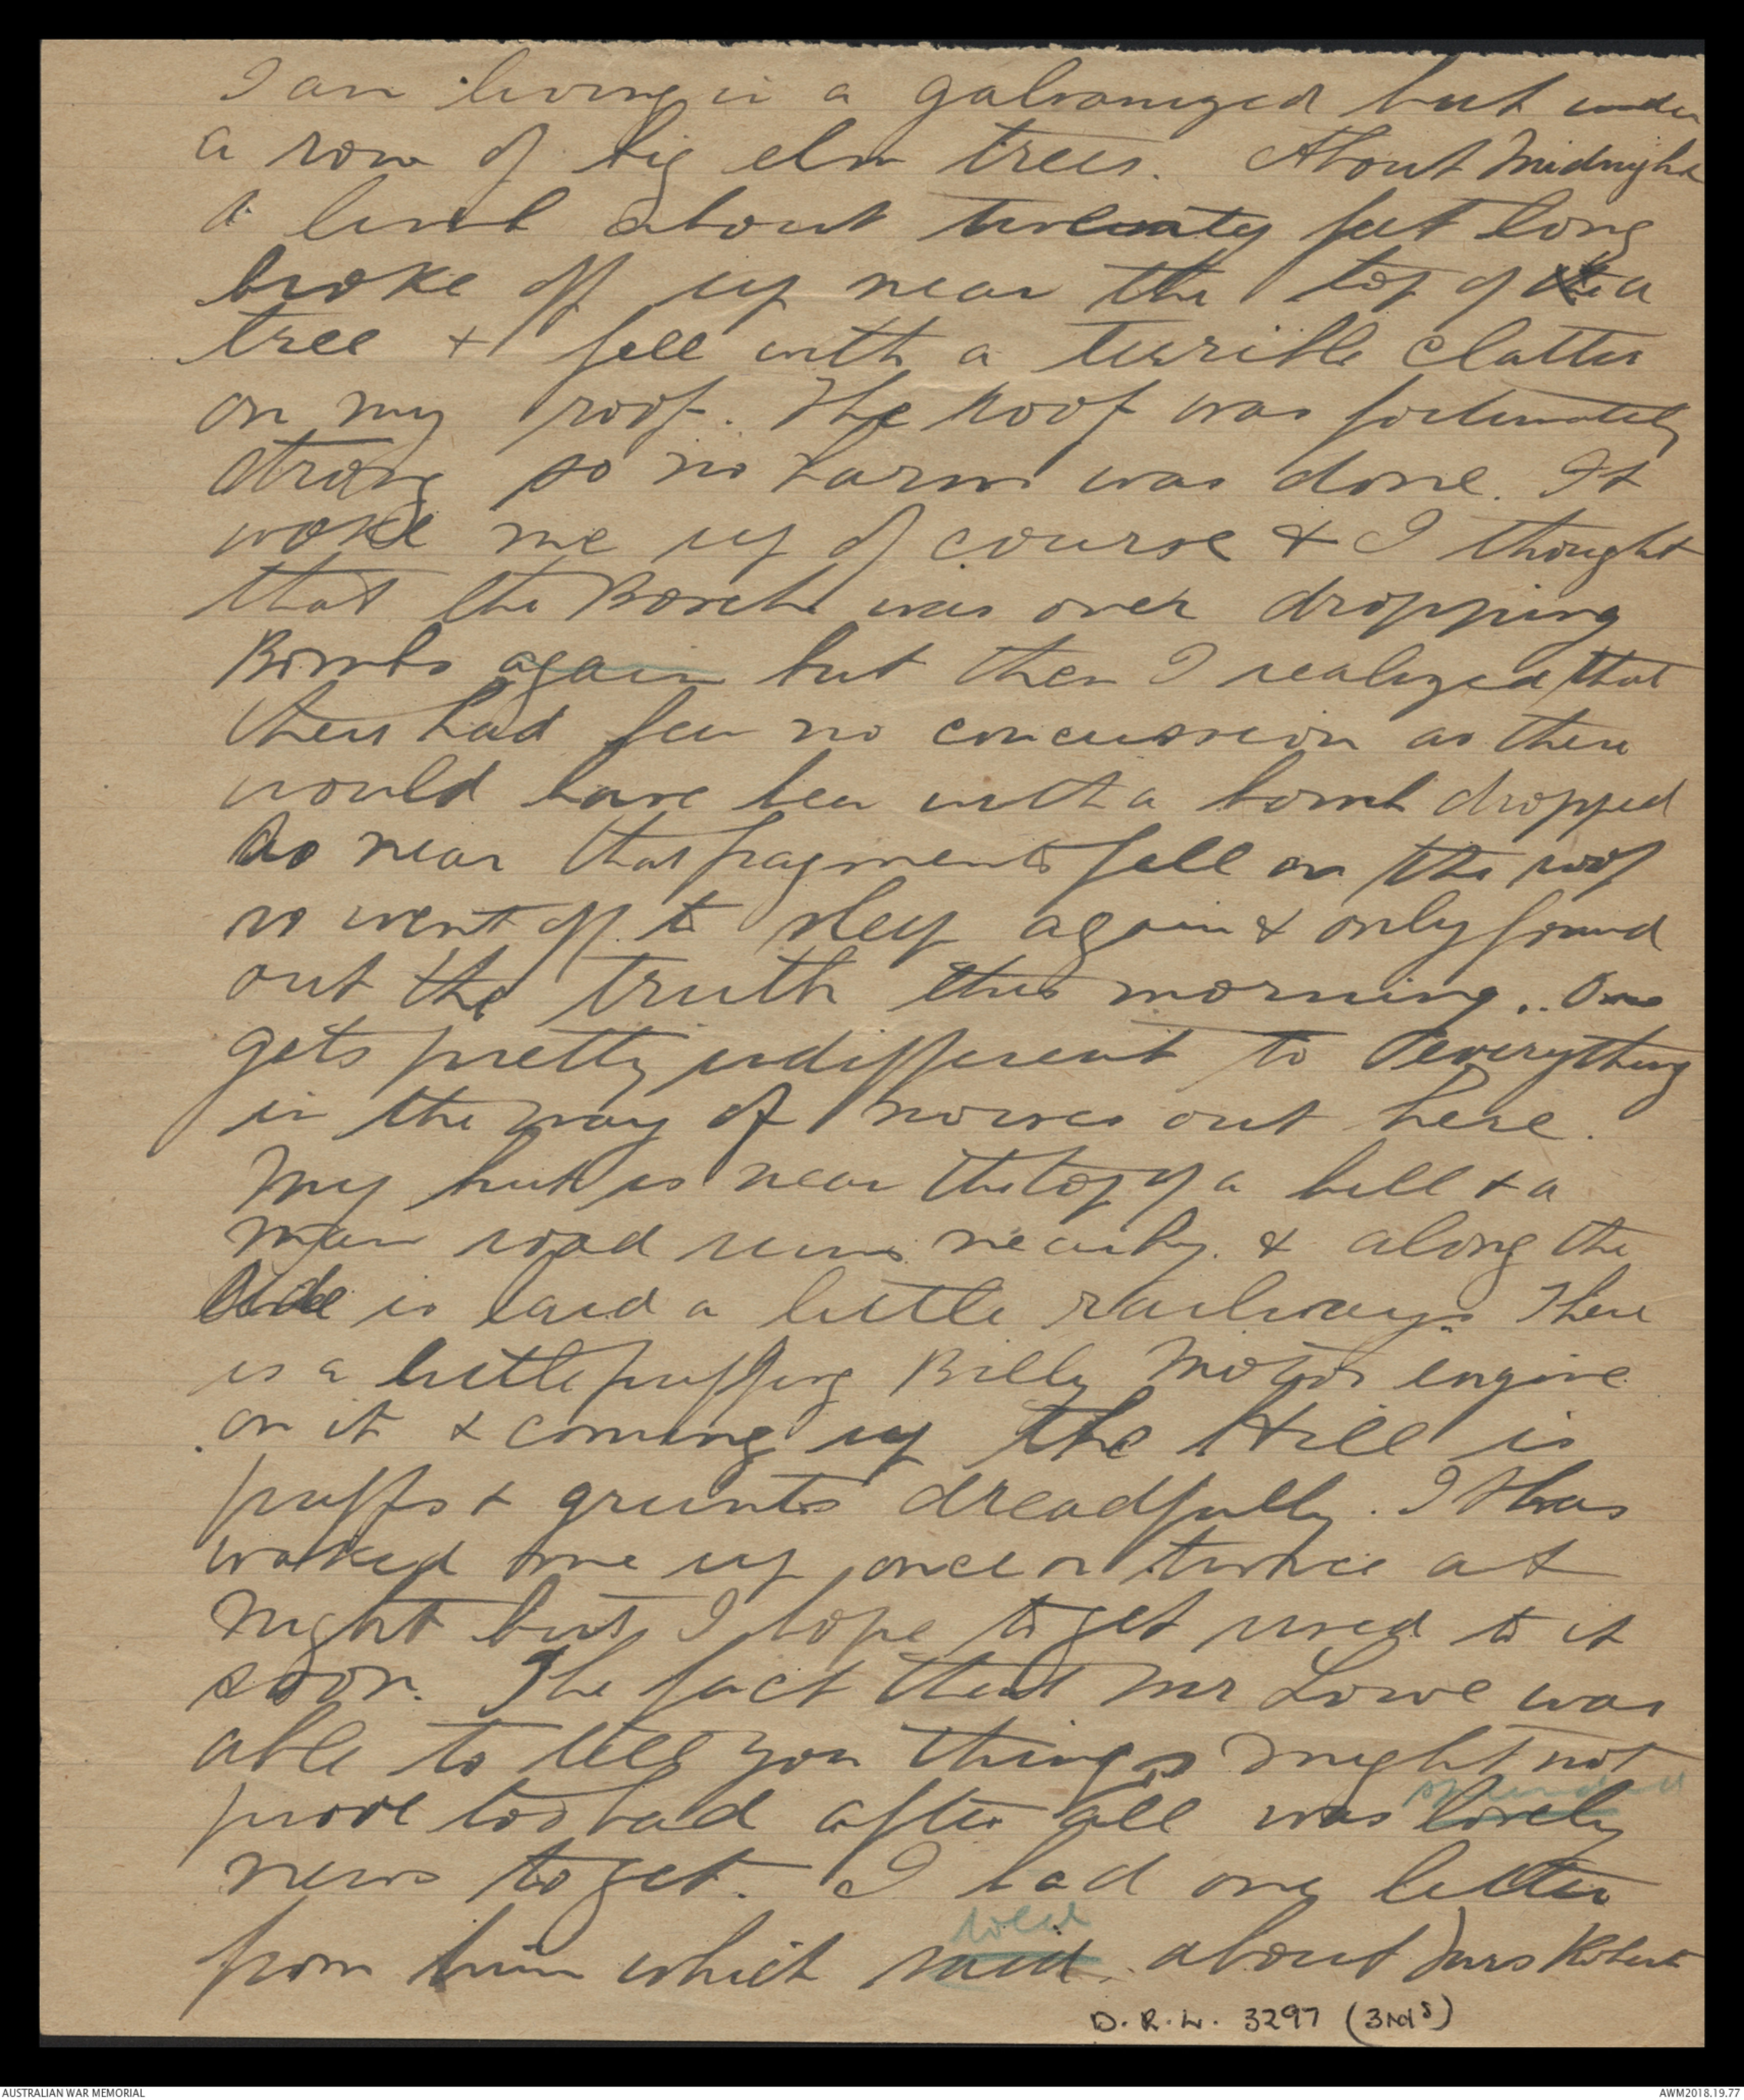 I am living in a galvanized hut under
a row of big elm trees. About Midnight
a limb about twenty feet long
broke off up near the top of a
tree & fell with a terrible clatter
on my roof. The Roof was fortunately
strong so no harm was done. It
woke me up of course & I thought
that the Bosche was over dropping
Bombs again but then I realized that
there had been no concussion as there
would have been with a bomb dropped
so near that fragments fell on the roof
so went off to sleep again & only found
out the truth this morning.. One
gets pretty indifferent to everything
in the way of noises out here.
My hut is near the top of a hill & a
main road runs nearby. & along the
side is laid a little railway. There
is a little puffing Billy Motor engine
on it & coming up the Hill is
puffs & grunts dreadfully. It has
waked me up once or twice at
night but I hope to get used to it
soon. The fact that Mr Lowe was
able to tell you things might not
splendid
prove too bad after all was lovely
news to get. I had one letter
told
from him which said, about Mrs Robert
D.R.L. 3297 (3rd s)
AUSTRALIAN WAR MEMORIAL
AWM2018.19.77